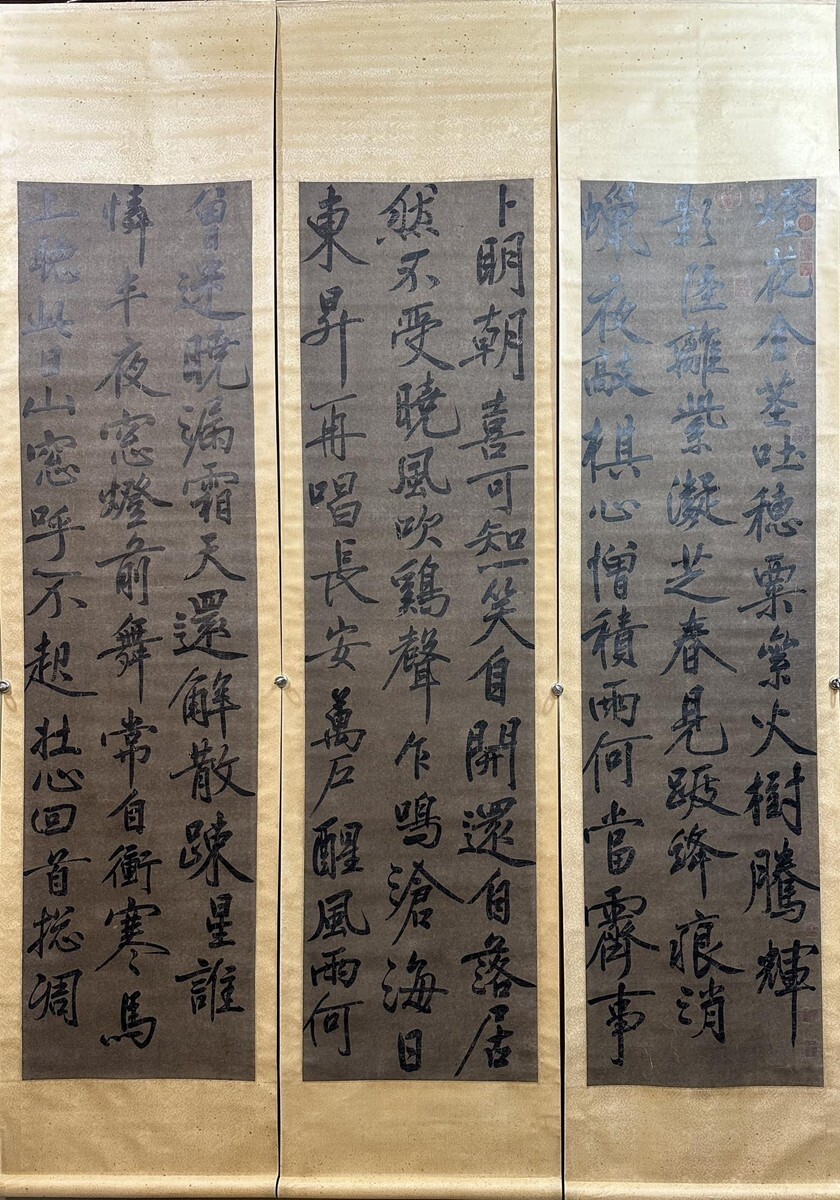 燈花金莖吐穗粟縈火樹騰輝
影陸離紫凝芝春見跋絳痕消
蠟夜敲棋心憎積雨何當霽事
卜明朝喜可知一笑自開還自落居
然不受曉風吹鷄聲乍鳴滄海日
東昇再唱長安萬戶醒風雨何
曾迷曉漏霜天還解散疎星誰
憐半夜窓燈前舞常自衝寒馬
上聽此日山窓呼不起壯心回首揔凋